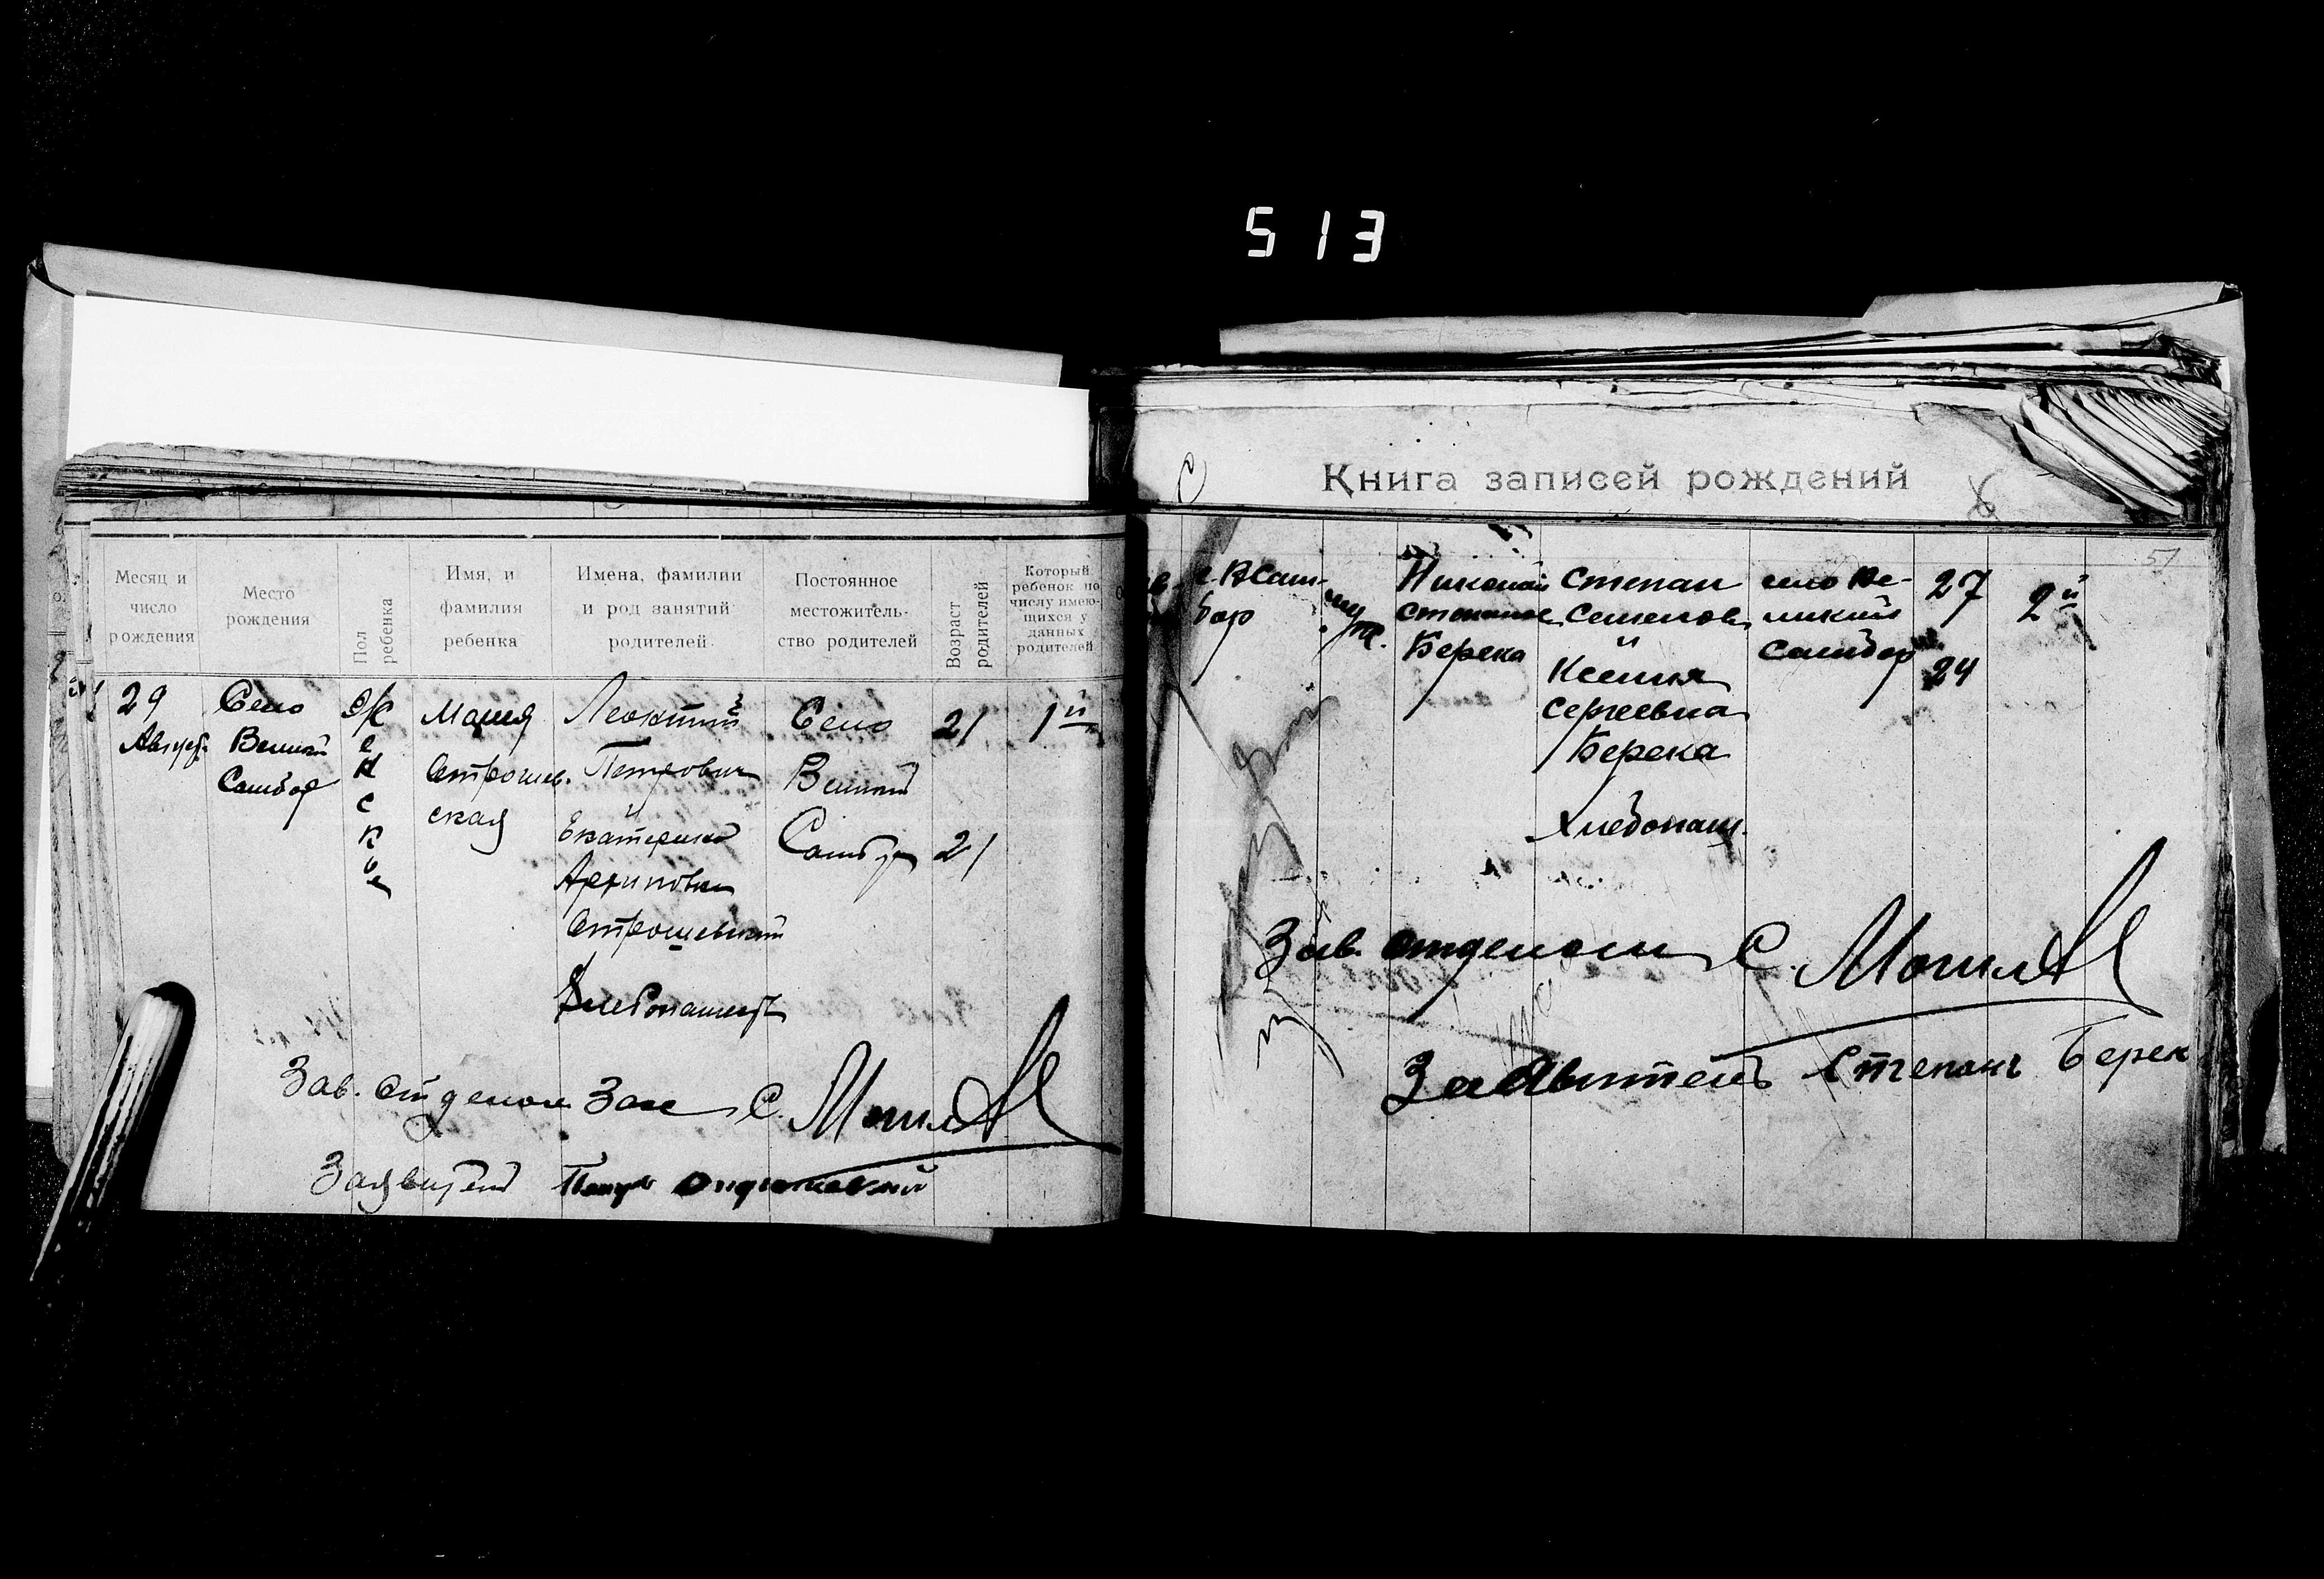 513
Месяц и
число
рождения
Место
рождения
Пол
ребенка
Имя, и
фамилия
ребенка
Имена, фамилии
и род занятий
родителей.
Постоянное
местожитель-
ство родителей
Возраст
родителей
Который
ребенок по
числу имею-
щихся у
данных
родителей
29
Август
Село
Великий
Самбор
Женское
Мария
ская
Петрович
и
Екатерина
Архиповна
Хлебопашец
Село
Великий
Самбор
21
21
1й
Зав. Отделом Загс С.
Заявитель Петр
Книга записей рождений
51
с. В Сам-
бор
муж.
Николай
Берека
Степан
Семенов.
и
Ксения
Сергеевна
Берека
Хлебопаш.
село Ве-
ликий
Самбор
27
24
2й
Зав. Отделом С.
Заявитель Степанъ Берек